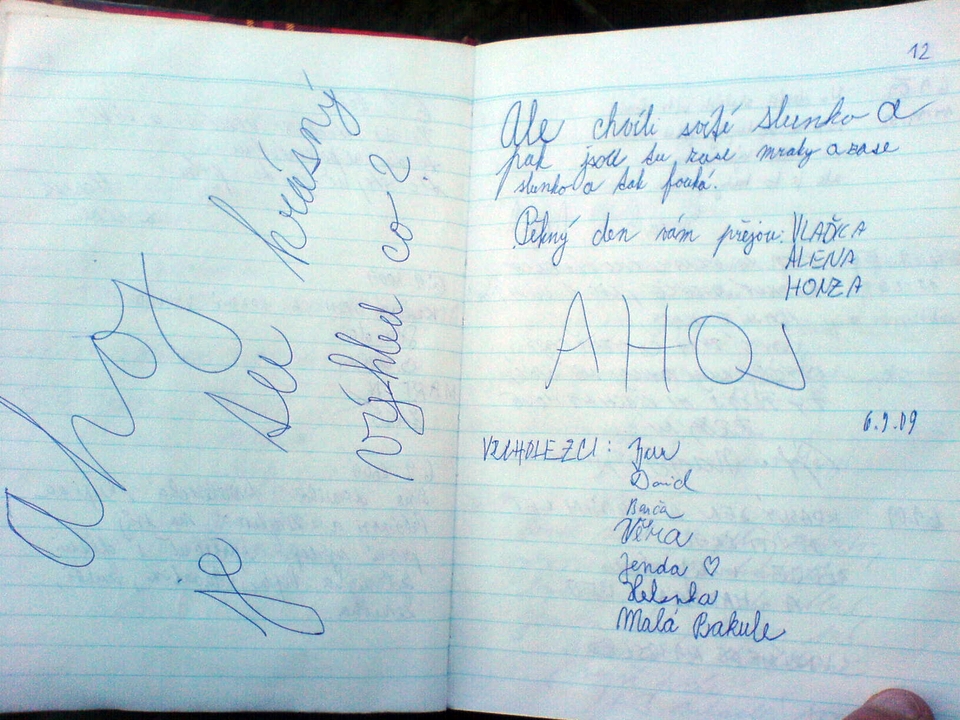 Ahoj
Je su krásný
výhled co?
12
Ale chvíli svítí slunko a
pak jsou tu zase mraky a zase
slunko a tak fouká.
Pěkný den vám přejou: VLAĎKA
ALENA
HONZA
AHOJ
6.9.09
VRCHOLEZCI:
David
Barča
Věra
Jenda ♡
Helenka
Malá Bakule